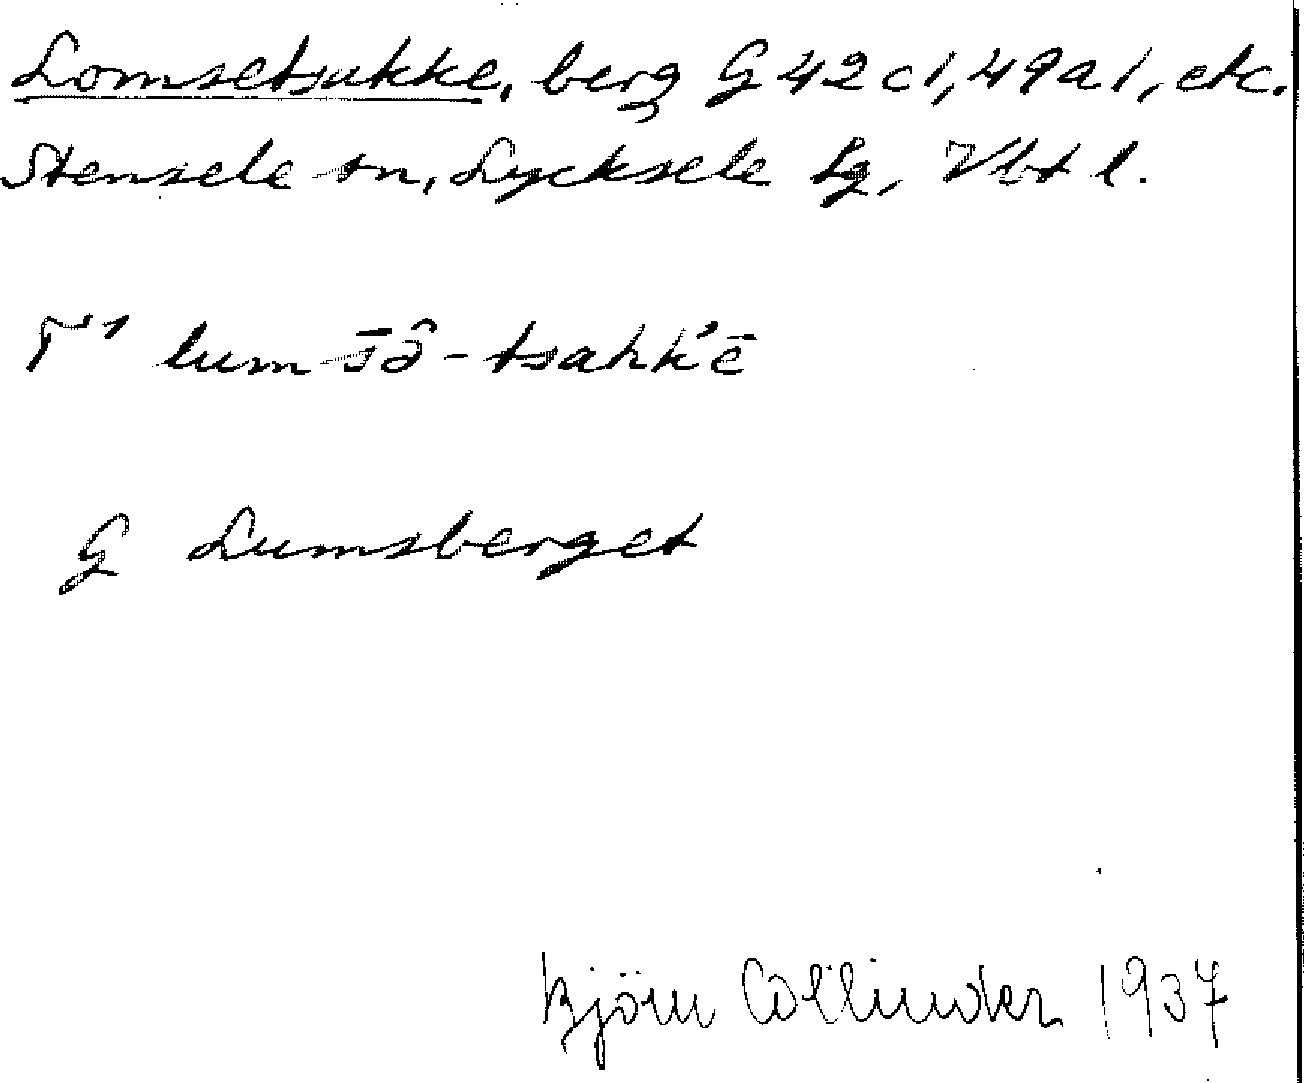 Lomsetsakke, berg G 42 c 1, 49 a 1, etc.
Stensele sn, Lycksele lg, Vbt l.
T¹ lum-s̄ō̂-tsahk'ē
G Lumsberget
Björn Collinder 1937